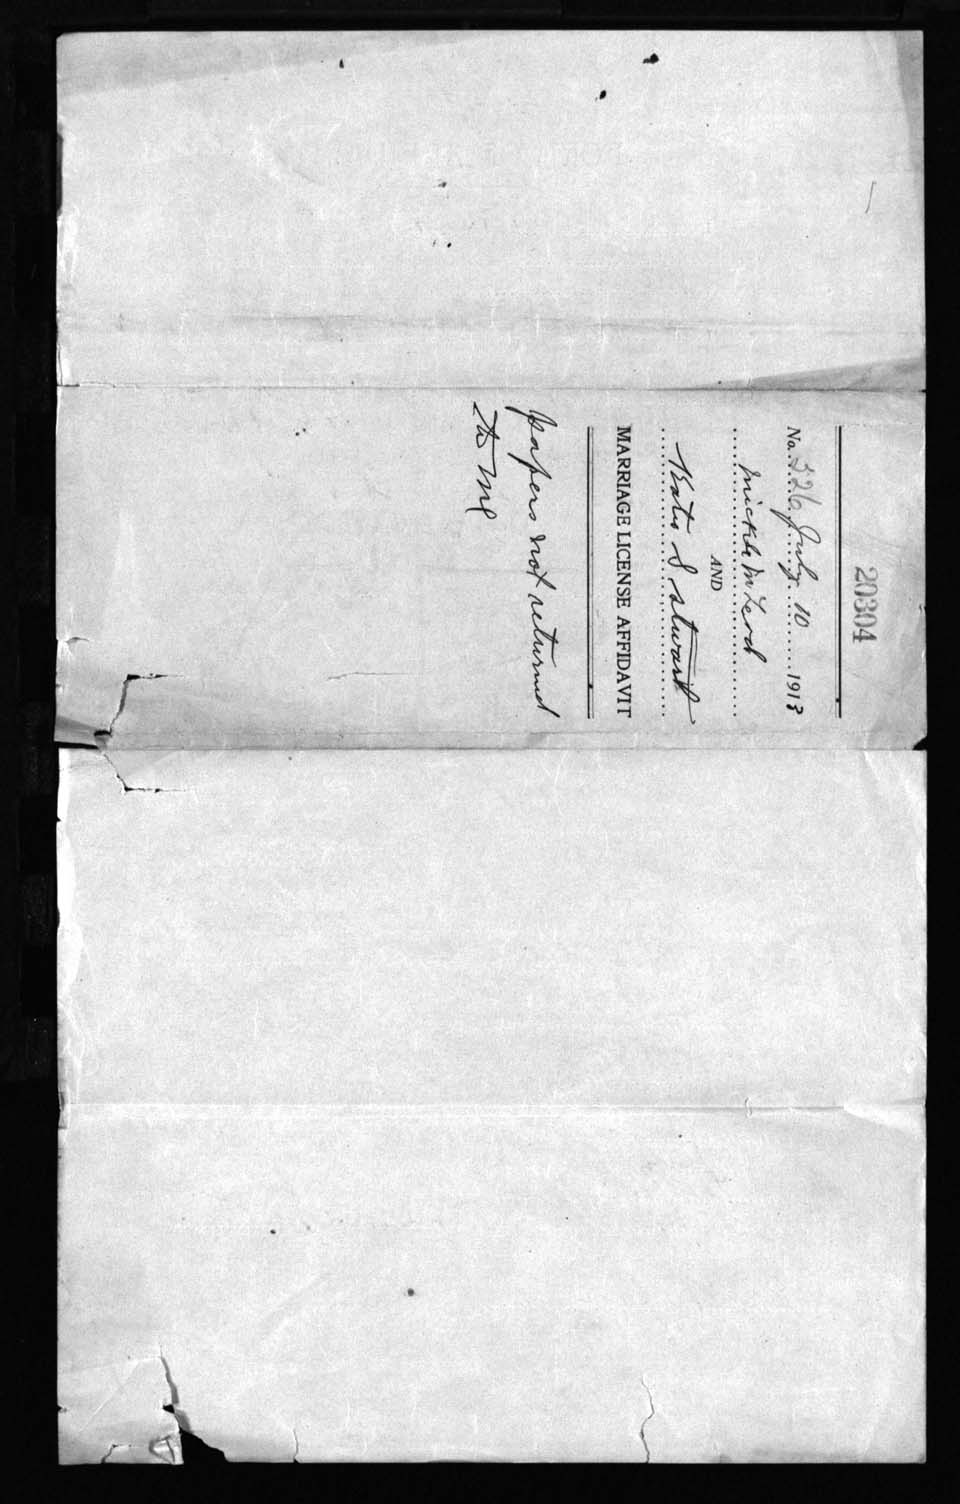 20304
No. 226 July 10 1913
Mickle M Lerch
AND
Katie S Stewart
MARRIAGE LICENSE AFFIDAVIT
papers not returned
to me